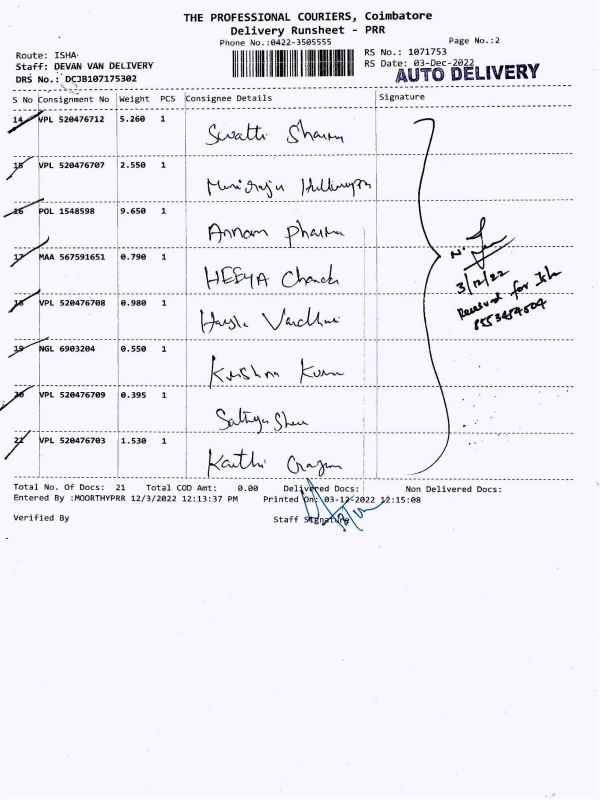 THE PROFESSIONAL COURIERS, Coimbatore
Delivery Runsheet - PRR
Phone No.:0422-3505555 Page No.:2
Route: ISHA RS No.: 1071753
Staff: DEVAN VAN DELIVERY RS Date: 03-Dec-2022
DRS No.: DCJB107175302 AUTO DELIVERY
S No Consignment No Weight PCS Consignee Details Signature
14 VPL 520476712 5.260 1 Swathi Sharma
15 VPL 520476707 2.550 1
16 POL 1548598 9.650 1 Annam Pharma
17 MAA 567591651 0.790 1 HEEYA Chanda
18 VPL 520476708 0.980 1 Vardhini
19 NGL 6903204 0.550 1 Krishna Kumar
20 VPL 520476709 0.395 1 Sathya
21 VPL 520476703 1.530 1 Karthi
N.
3/12/22
Received for Isha
Total No. Of Docs: 21 Total COD Amt: 0.00 Delivered Docs: Non Delivered Docs:
Entered By :MOORTHYPRR 12/3/2022 12:13:37 PM Printed On: 03-12-2022 12:15:08
Verified By Staff Signature